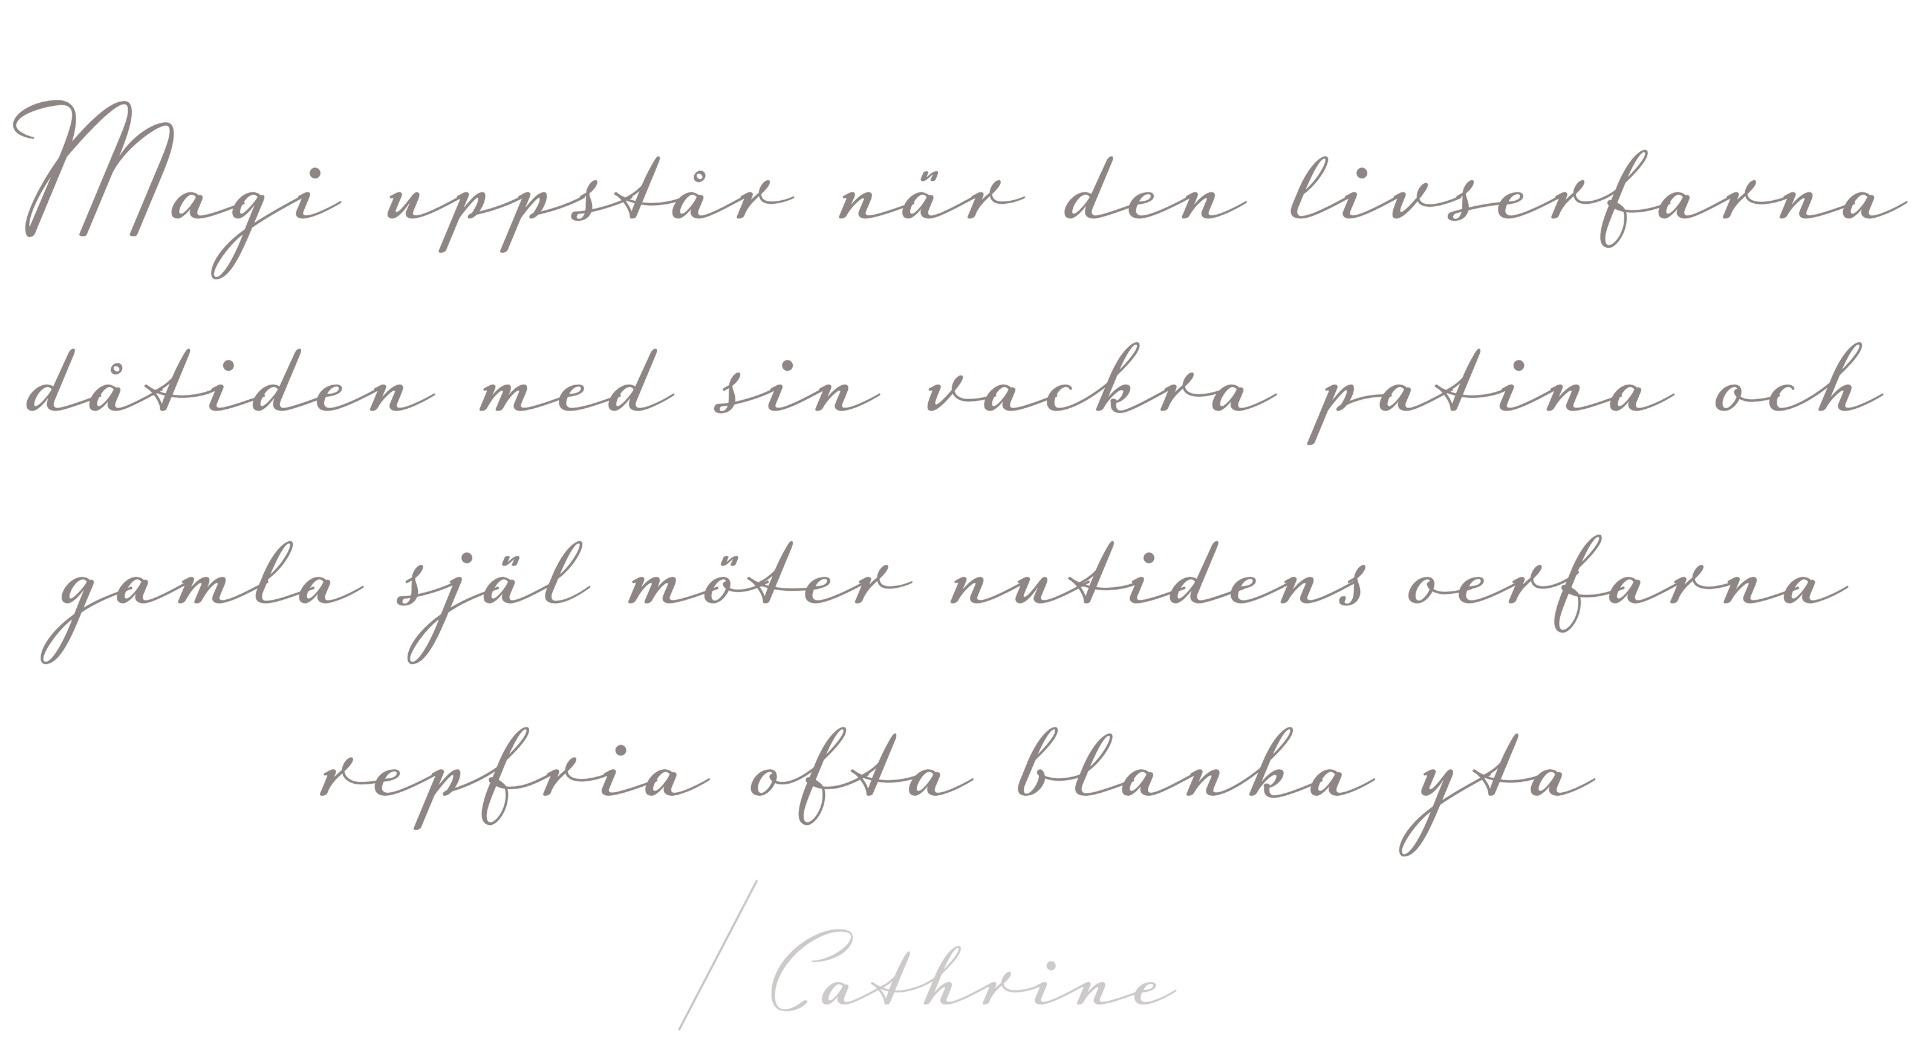 Magi uppstår när den livserfarna
dåtiden med sin vackra patina och
gamla själ möter nutidens oerfarna
repfria ofta blanka yta
/Cathrine